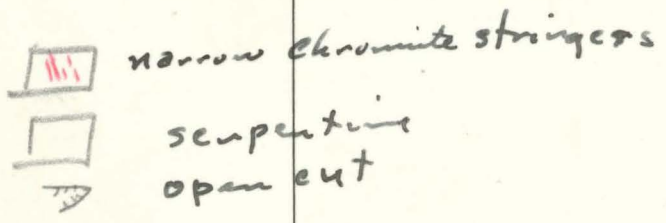 narrow chromite stringers
serpentine
open cut